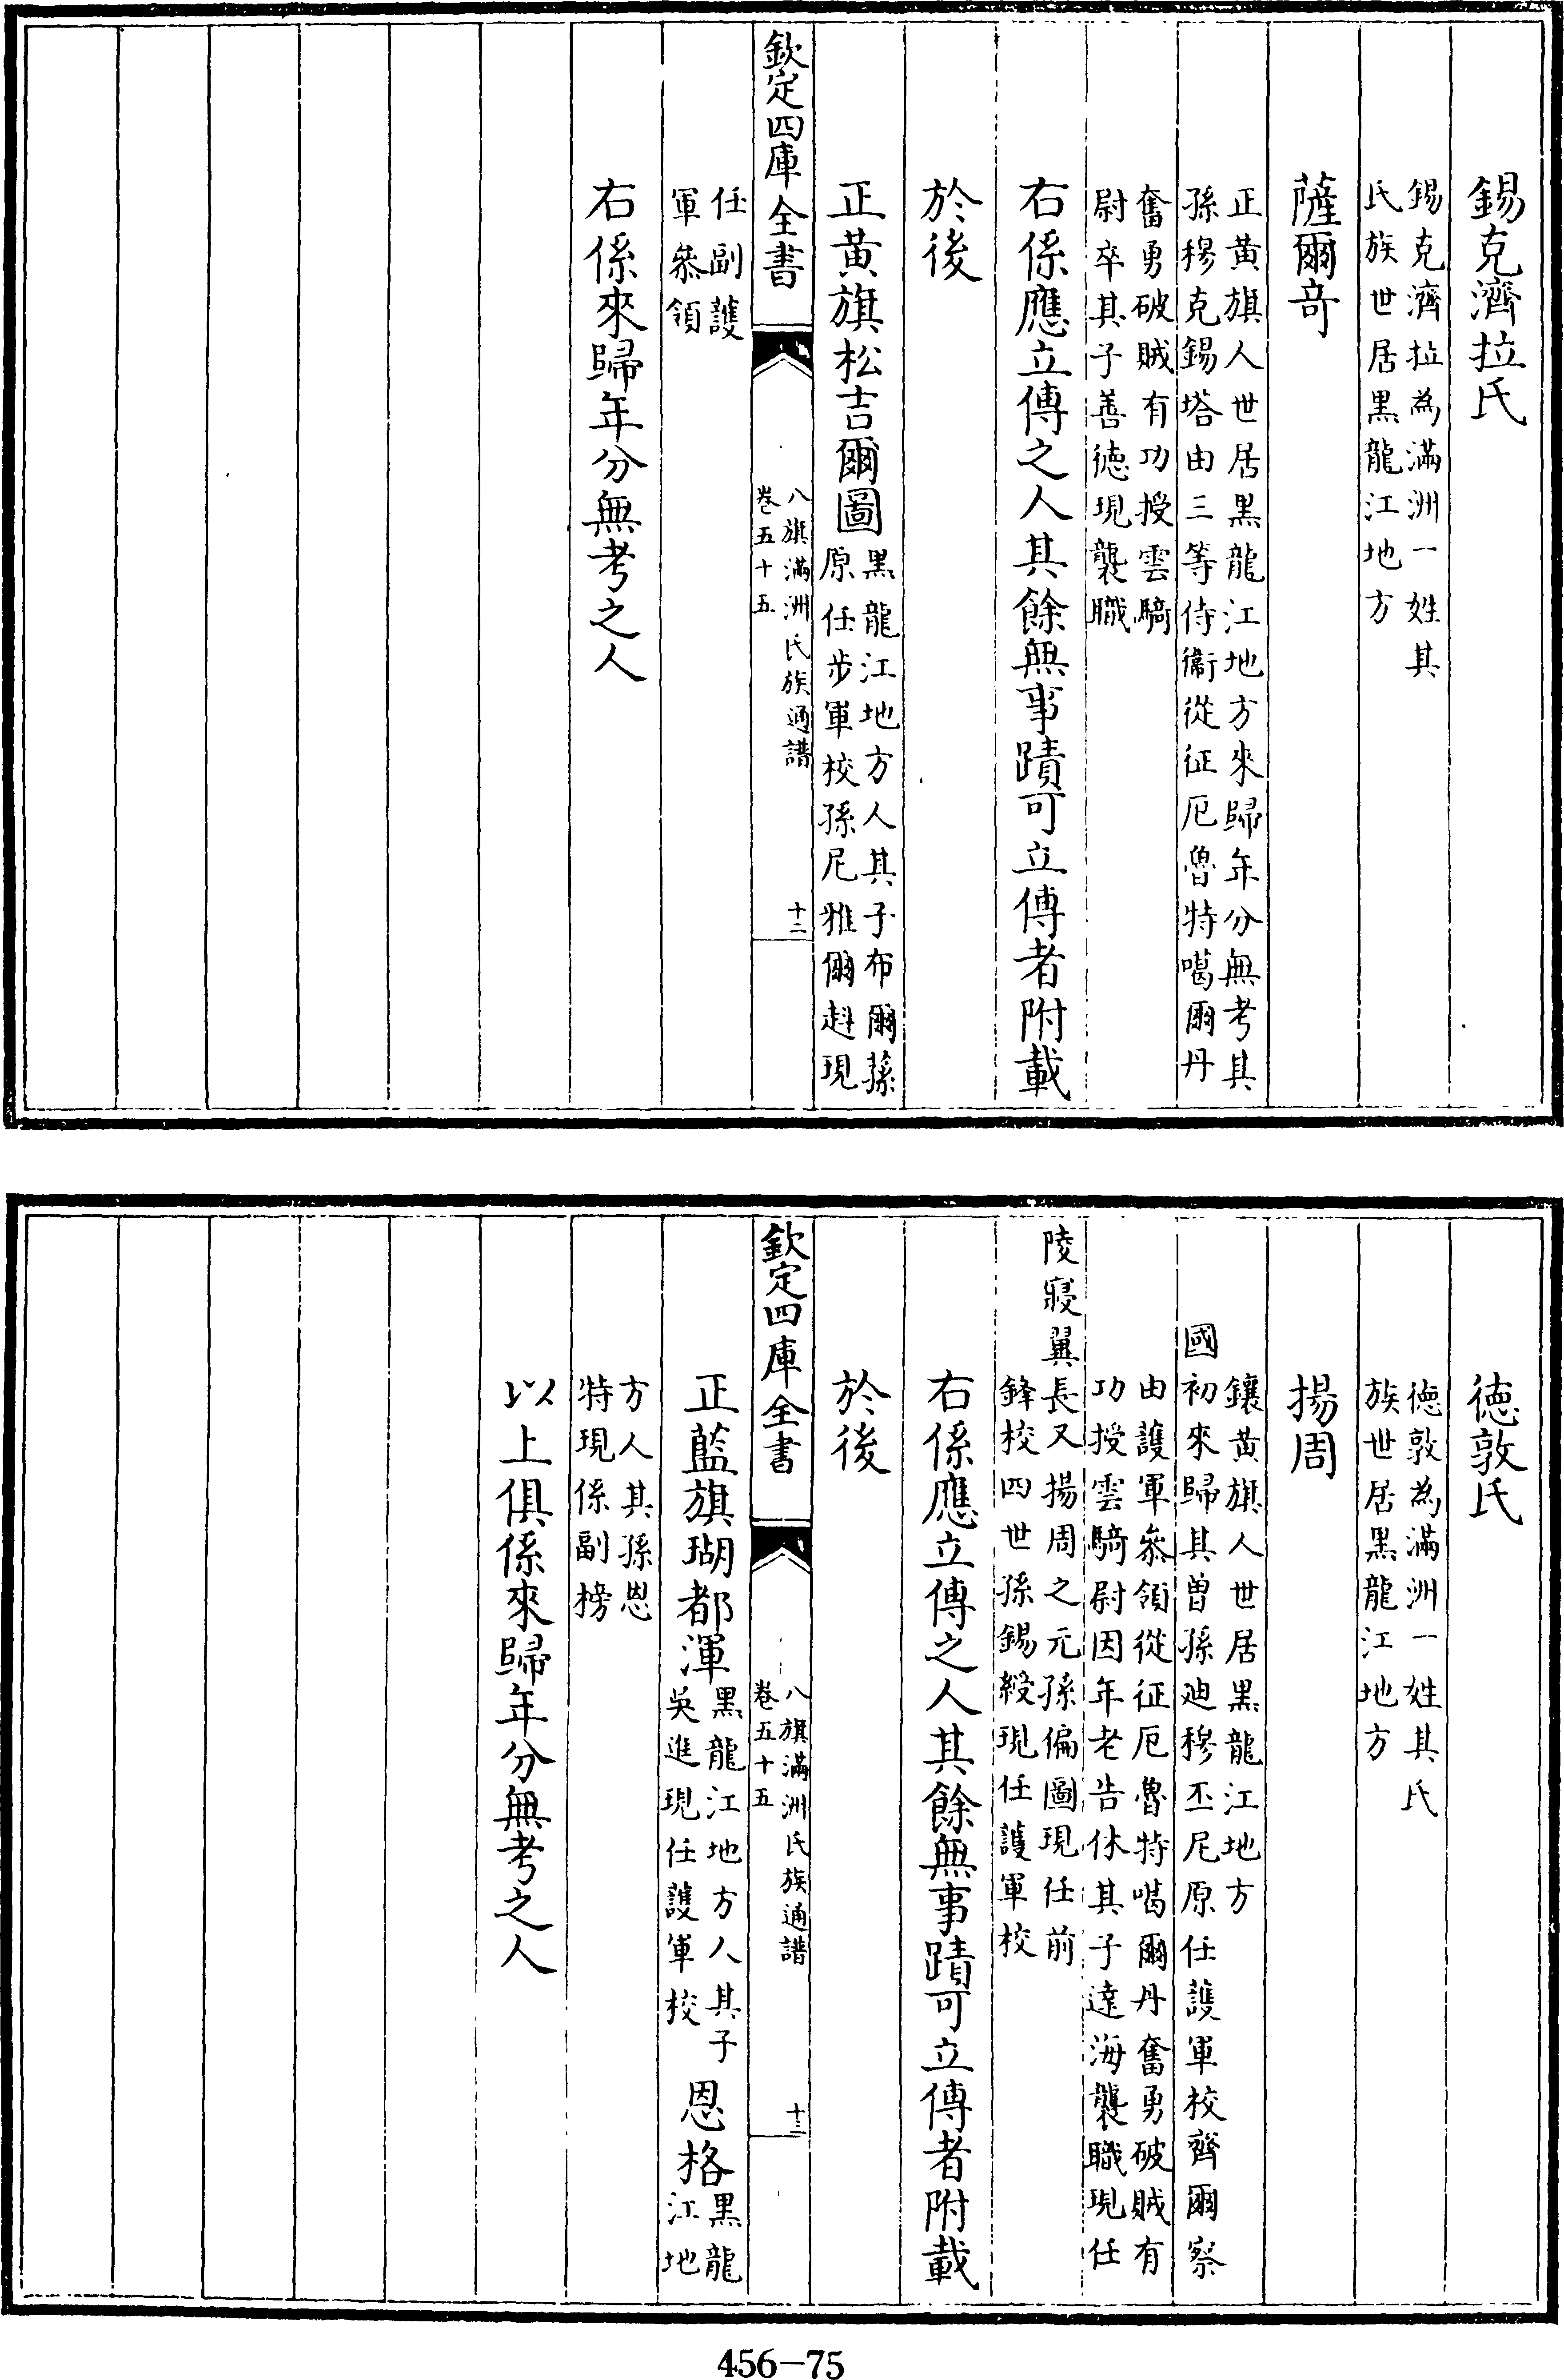 錫克濟拉氏
錫克濟拉為滿洲一姓其
氏族世居黑龍江地方
薩爾竒
正黃旗人世居黑龍江地方來歸年分無考其
孫穆克錫塔由三等侍衞從征厄魯特噶爾丹
奮勇破賊有功授雲騎
尉卒其子善徳現襲職
右係應立傳之人其餘無事蹟可立傳者附載
於後
正黃旗松吉爾圖
黑龍江地方人其子布爾蓀
原任步軍校孫尼雅爾赳現
欽定四庫全書
八旗滿洲氏族通譜
卷五十五
十二
任副護
軍叅領
右係來歸年分無考之人
徳敦氏
徳敦為滿洲一姓其氏
族世居黑龍江地方
揚周
鑲黃旗人世居黑龍江地方
國初來歸其曾孫迪穆丕尼原任護軍校齊爾察
由護軍叅領從征厄魯特噶爾丹奮勇破賊有
功授雲騎尉因年老告休其子達海襲職現任
陵寢翼長又揚周之元孫偏圖現任前
鋒校四世孫錫綬現任護軍校
右係應立傳之人其餘無事蹟可立傳者附載
於後
欽定四庫全書
八旗滿洲氏族通譜
卷五十五
十三
正藍旗瑚都渾
黑龍江地方人其子
吳進現任護軍校
恩格
黑龍
江地
方人其孫恩
特現係副榜
以上俱係來歸年分無考之人
456-75